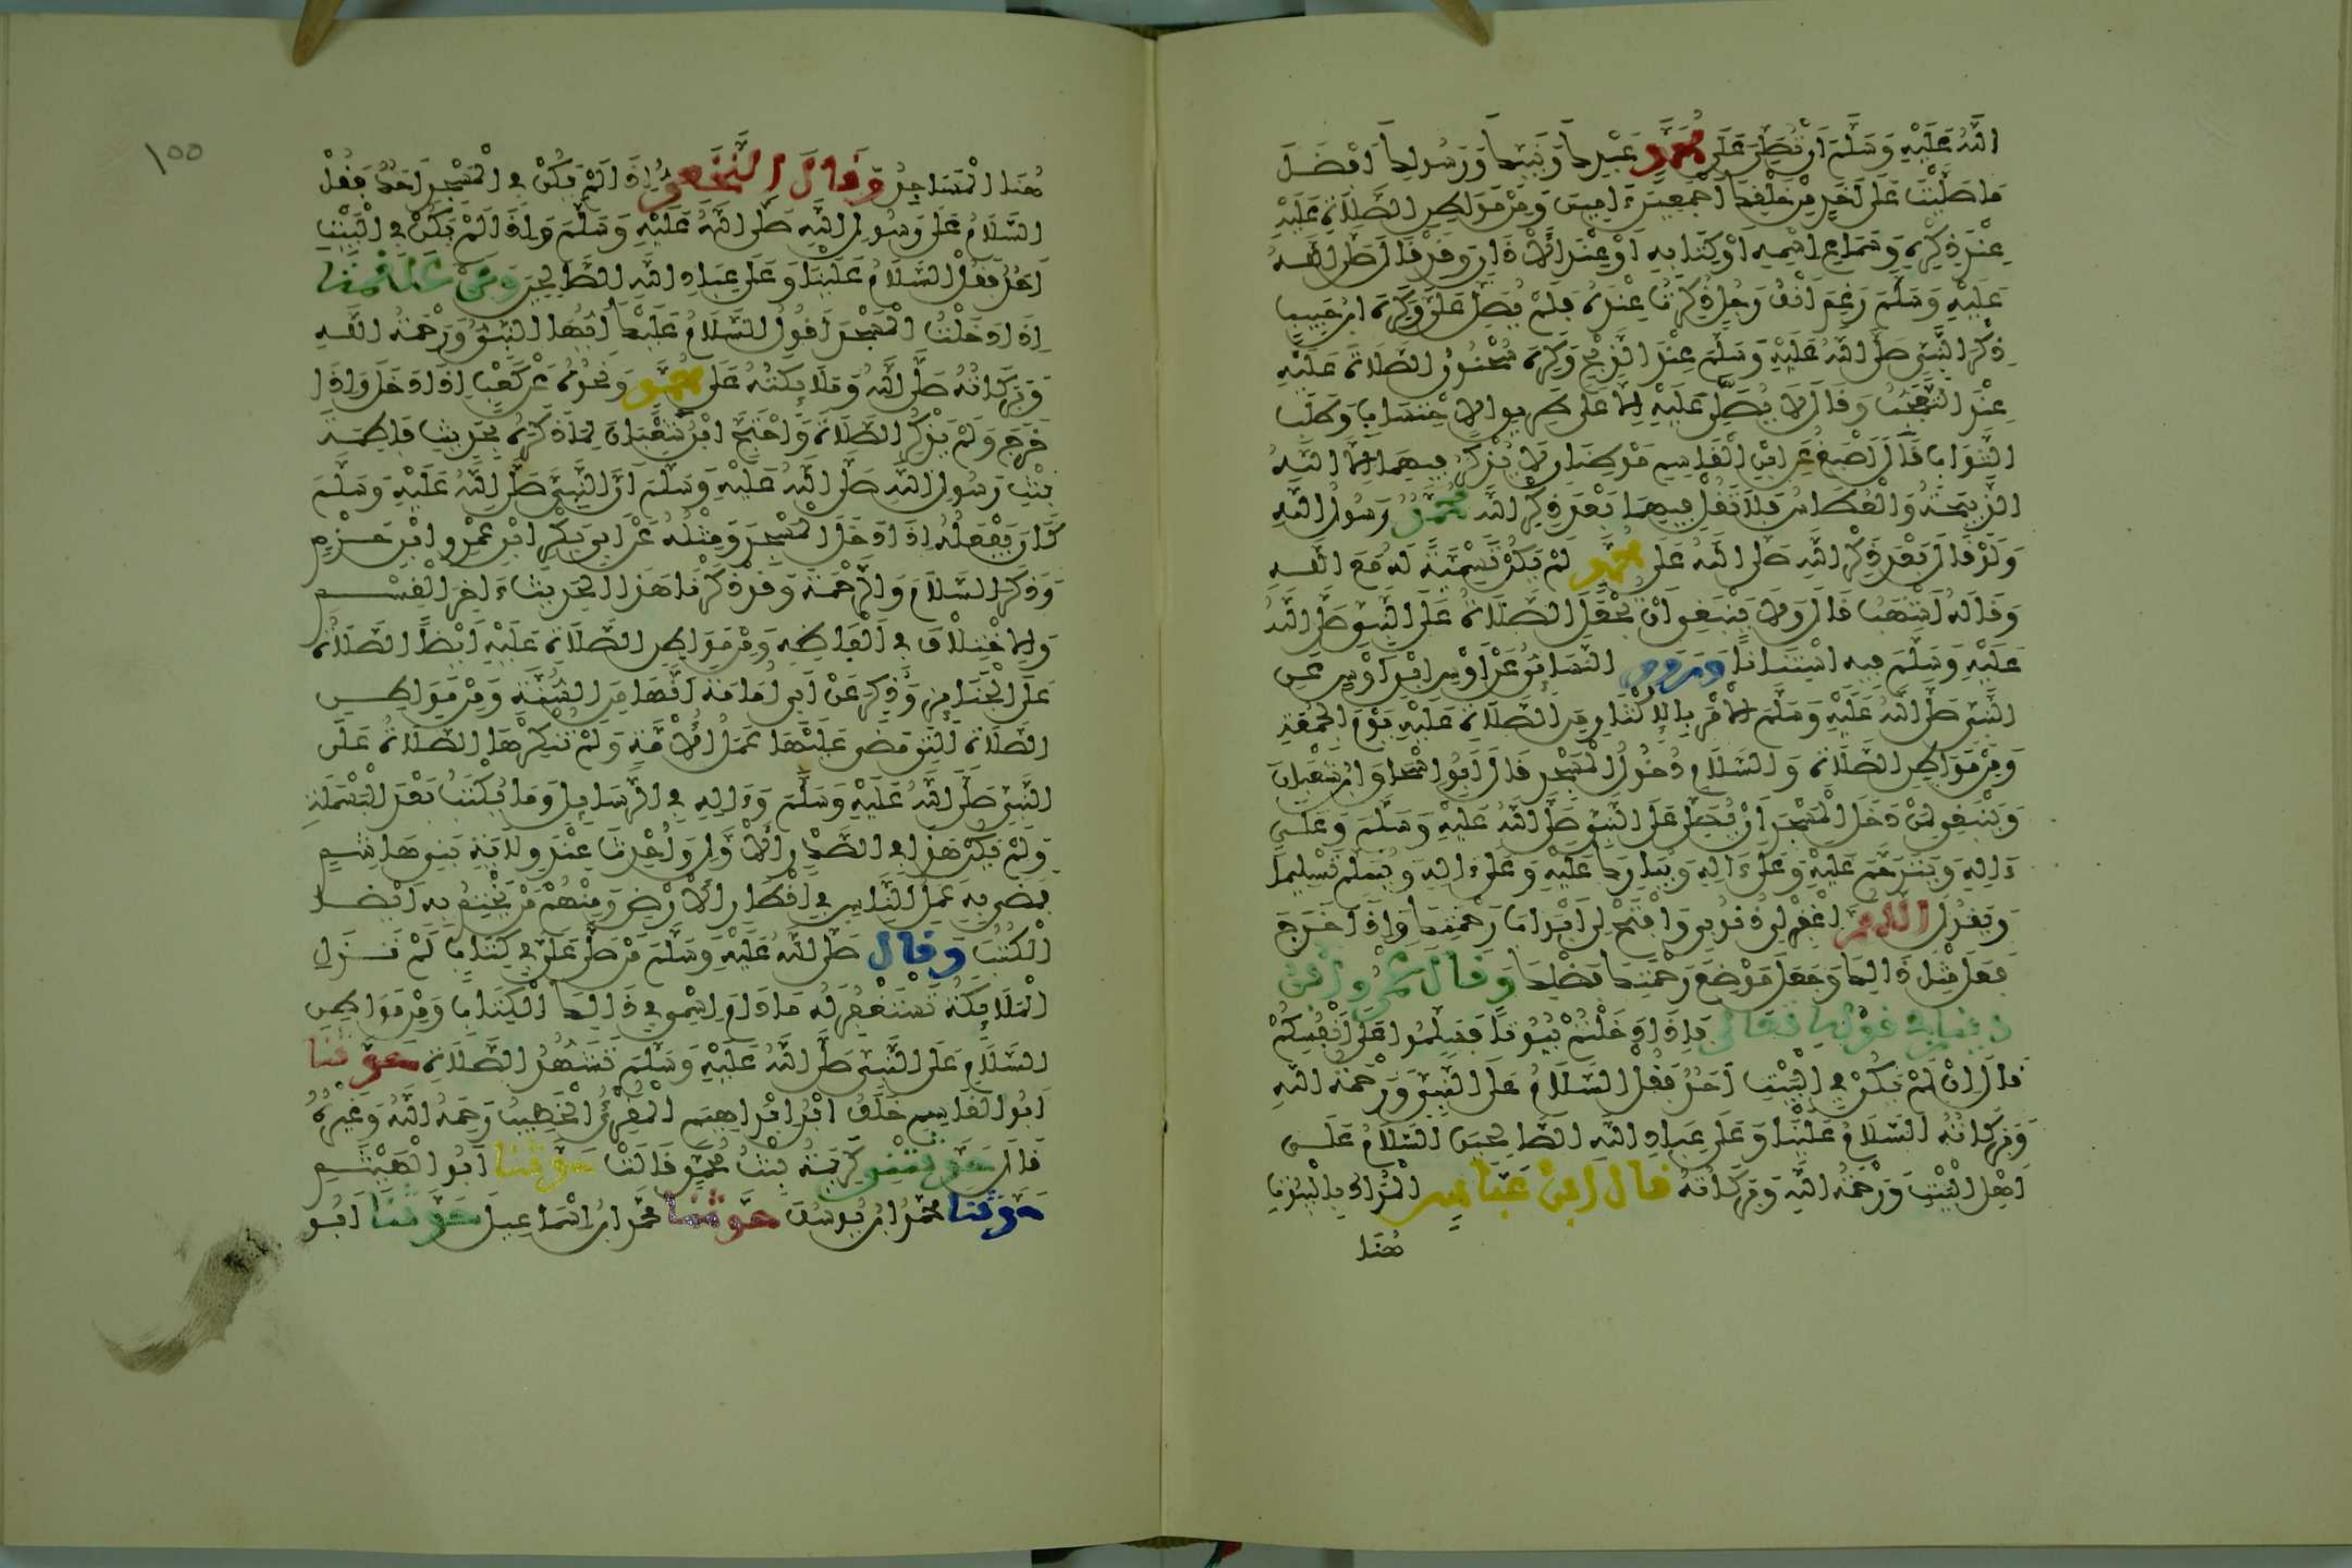 اللهُ عَلَيْهِ وَسَلَّمَ أَنْ تُصَلِّيَ عَلَى مُحَمَّدٍ عَبْدِكَ وَنَبِيِّكَ وَرَسُولِكَ أَفْضَلَ
مَا صَلَّيْتَ عَلَى أَحَدٍ مِنْ خَلْقِكَ أَجْمَعِينَ ءَامِينَ وَمِنْ مَوَاطِنِ الصَّلَاةِ عَلَيْهِ
عِنْدَ ذِكْرِهِ وَسَمَاعِ اسْمِهِ أَوْ كِتَابِهِ أَوْ عِنْدَ الْأَذَانِ وَقَدْ قَالَ صَلَّى اللهُ
عَلَيْهِ وَسَلَّمَ رَغِمَ أَنْفُ رَجُلٍ ذُكِرْتُ عِنْدَهُ فَلَمْ يُصَلِّ عَلَيَّ وَكَرِهَ ابْنُ حَبِيبٍ
ذِكْرَ النَّبِيِّ صَلَّى اللهُ عَلَيْهِ وَسَلَّمَ عِنْدَ الذَّبْحِ وَكَرِهَ سُحْنُونُ الصَّلَاةَ عَلَيْهِ
عِنْدَ التَّعَجُّبِ وَقَالَ لَا يُصَلَّى عَلَيْهِ إِلَّا عَلَى طَرِيقِ الْاحْتِسَابِ وَطَلَبِ
الثَّوَابِ قَالَ أَصْبَغُ عَنِ ابْنِ الْقَاسِمِ مَوْطِنَانِ لَا يُذْكَرُ فِيهِمَا إِلَّا اللهُ
الذَّبِيحَةُ وَالْعُطَاسُ فَلَا تَقُلْ فِيهِمَا بَعْدَ ذِكْرِ اللهِ مُحَمَّدٌ رَسُولُ اللهِ
وَلَوْ قَالَ بَعْدَ ذِكْرِ اللهِ صَلَّى اللهُ عَلَى مُحَمَّدٍ لَمْ يَكُنْ تَسْمِيَةً لَهُ مَعَ اللهِ
وَقَالَهُ أَشْهَبُ قَالَ وَلَا يَنْبَغِي أَنْ تُجْعَلَ الصَّلَاةُ عَلَى النَّبِيِّ صَلَّى اللهُ
عَلَيْهِ وَسَلَّمَ فِيهِ اسْتِنَانًا وَرَوَى النَّسَائِيُّ عَنْ أَوْسِ ابْنِ أَوْسٍ عَنِ
النَّبِيِّ صَلَّى اللهُ عَلَيْهِ وَسَلَّمَ الْأَمْرَ بِالْإِكْثَارِ مِنَ الصَّلَاةِ عَلَيْهِ يَوْمَ الْجُمُعَةِ
وَمِنْ مَوَاطِنِ الصَّلَاةِ وَالسَّلَامِ دُخُولُ الْمَسْجِدِ قَالَ أَبُو إِسْحَاقَ ابْنُ شَعْبَانَ
وَيَنْبَغِي لِمَنْ دَخَلَ الْمَسْجِدَ أَنْ يُصَلِّيَ عَلَى النَّبِيِّ صَلَّى اللهُ عَلَيْهِ وَسَلَّمَ وَعَلَى
ءَالِهِ وَيَتَرَحَّمَ عَلَيْهِ وَعَلَى ءَالِهِ وَيُبَارِكَ عَلَيْهِ وَعَلَى ءَالِهِ وَيُسَلِّمَ تَسْلِيمًا
وَيَقُولَ اللَّهُمَّ اغْفِرْ لِي ذُنُوبِي وَافْتَحْ لِي أَبْوَابَ رَحْمَتِكَ وَإِذَا خَرَجَ
فَعَلَ مِثْلَ ذَالِكَ وَجَعَلَ مَوْضِعَ رَحْمَتِكَ فَضْلِكَ وَقَالَ عَمْرُو ابْنُ
دِينَارٍ فِي قَوْلِهِ تَعَالَى فَإِذَا دَخَلْتُمْ بُيُوتًا فَسَلِّمُوا عَلَى أَنْفُسِكُمْ
قَالَ إِنْ لَمْ يَكُنْ فِي الْبَيْتِ أَحَدٌ فَقُلِ السَّلَامُ عَلَى النَّبِيِّ وَرَحْمَةُ اللهِ
وَبَرَكَاتُهُ السَّلَامُ عَلَيْنَا وَعَلَى عِبَادِ اللهِ الصَّالِحِينَ السَّلَامُ عَلَى
أَهْلِ الْبَيْتِ وَرَحْمَةُ اللهِ وَبَرَكَاتُهُ قَالَ ابْنُ عَبَّاسٍ الْمُرَادُ بِالْبُيُوتِ
هُنَا
١٥٥
هُنَا الْمَسَاجِدُ وَقَالَ النَّخَعِيُّ إِذَا لَمْ يَكُنْ فِي الْمَسْجِدِ أَحَدٌ فَقُلْ
السَّلَامُ عَلَى رَسُولِ اللهِ صَلَّى اللهُ عَلَيْهِ وَسَلَّمَ وَإِذَا لَمْ يَكُنْ فِي الْبَيْتِ
أَحَدٌ فَقُلِ السَّلَامُ عَلَيْنَا وَعَلَى عِبَادِ اللهِ الصَّالِحِينَ وَعَنْ عَلْقَمَةَ
إِذَا دَخَلْتُ الْمَسْجِدَ أَقُولُ السَّلَامُ عَلَيْكَ أَيُّهَا النَّبِيُّ وَرَحْمَةُ اللهِ
وَبَرَكَاتُهُ صَلَّى اللهُ وَمَلَائِكَتُهُ عَلَى مُحَمَّدٍ وَنَحْوُهُ عَنْ كَعْبٍ إِذَا دَخَلَ وَإِذَا
خَرَجَ وَلَمْ يَذْكُرِ الصَّلَاةَ وَاحْتَجَّ ابْنُ شَعْبَانَ لِمَا ذَكَرَهُ بِحَدِيثِ فَاطِمَةَ
بِنْتِ رَسُولِ اللهِ صَلَّى اللهُ عَلَيْهِ وَسَلَّمَ أَنَّ النَّبِيَّ صَلَّى اللهُ عَلَيْهِ وَسَلَّمَ
كَانَ يَفْعَلُهُ إِذَا دَخَلَ الْمَسْجِدَ وَمِثْلُهُ عَنْ أَبِي بَكْرِ ابْنِ عَمْرِو ابْنِ حَزْمٍ
وَذَكَرَ السَّلَامَ وَالرَّحْمَةَ وَقَدْ ذَكَرْنَا هَذَا الْحَدِيثَ ءَاخِرَ الْقِسْمِ
وَالِاخْتِلَافَ فِي أَلْفَاظِهِ وَمِنْ مَوَاطِنِ الصَّلَاةِ عَلَيْهِ أَيْضًا الصَّلَاةُ
عَلَى الْجَنَائِزِ وَذُكِرَ عَنْ أَبِي أُمَامَةَ أَنَّهَا مِنَ السُّنَّةِ وَمِنْ مَوَاطِنِ
الصَّلَاةِ الَّتِي مَضَى عَلَيْهَا عَمَلُ الْأُمَّةِ وَلَمْ تُنْكِرْهَا الصَّلَاةُ عَلَى
النَّبِيِّ صَلَّى اللهُ عَلَيْهِ وَسَلَّمَ وَءَالِهِ فِي الرَّسَائِلِ وَمَا يُكْتَبُ بَعْدَ الْبَسْمَلَةِ
وَلَمْ يَكُنْ هَذَا فِي الصَّدْرِ الْأَوَّلِ وَأُحْدِثَ عِنْدَ وِلَايَةِ بَنِي هَاشِمٍ
فَمَضَى بِهِ عَمَلُ النَّاسِ فِي أَقْطَارِ الْأَرْضِ وَمِنْهُمْ مَنْ يَخْتِمُ بِهِ أَيْضًا
الْكُتُبَ وَقَالَ صَلَّى اللهُ عَلَيْهِ وَسَلَّمَ مَنْ صَلَّى عَلَيَّ فِي كِتَابٍ لَمْ تَزَلِ
الْمَلَائِكَةُ تَسْتَغْفِرُ لَهُ مَا دَامَ اسْمِي فِي ذَالِكَ الْكِتَابِ وَمِنْ مَوَاطِنِ
السَّلَامِ عَلَى النَّبِيِّ صَلَّى اللهُ عَلَيْهِ وَسَلَّمَ تَشَهُّدُ الصَّلَاةِ حَدَّثَنَا
أَبُو الْقَاسِمِ خَلَفُ ابْنُ ابْرَاهِيمَ الْمُقْرِئُ الْخَطِيبُ رَحِمَهُ اللهُ وَغَيْرُهُ
قَالَ حَدَّثَتْنِي كَرِيمَةُ بِنْتُ مُحَمَّدٍ قَالَتْ حَدَّثَنَا أَبُو الْهَيْثَمِ
حَدَّثَنَا مُحَمَّدُ ابْنُ يُوسُفَ حَدَّثَنَا مُحَمَّدُ ابْنُ اسْمَاعِيلَ حَدَّثَنَا أَبُو